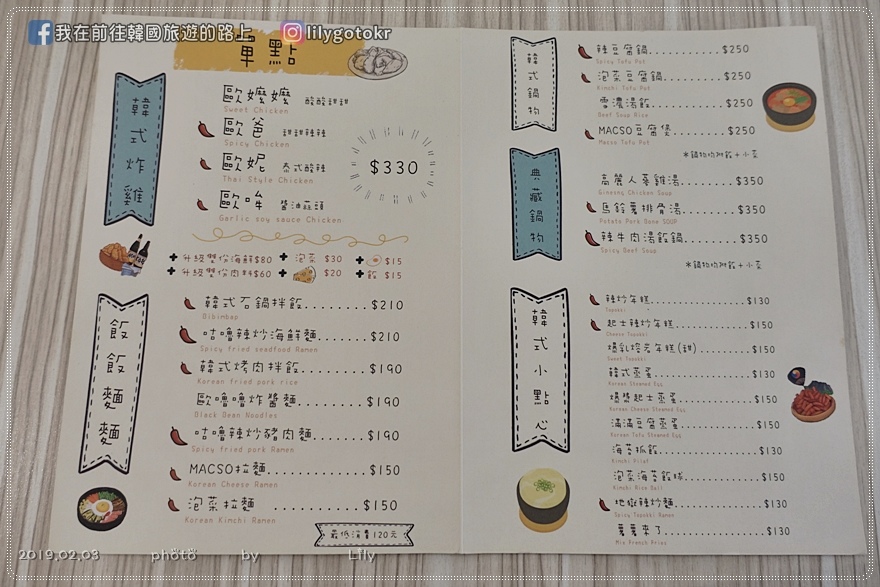 我在前往韓國旅遊的路上 lilygotokr
單點
韓式炸雞
歐嬤嬤 酸酸甜甜
Sweet Chicken
歐爸 甜甜辣辣
Spicy Chicken
歐妮 泰式酸辣
Thai Style Chicken
歐哞 醬油蒜頭
Garlic soy sauce Chicken
$330
+升級雙份海鮮$80 +泡菜 $30 + $15
+升級雙份肉料$60 + $20 +飯 $15
飯飯麵麵
韓式石鍋拌飯........$210
Bibimbap
咕嚕辣炒海鮮麵.......$210
Spicy fried seadfood Ramen
韓式烤肉拌飯........$190
Korean fried pork rice
歐嚕嚕炸醬麵........$190
Black Bean Noodles
咕嚕辣炒豬肉麵.......$190
Spicy fried pork Ramen
MACSO拉麵..........$150
Korean Cheese Ramen
泡菜拉麵..........$150
Korean Kimchi Ramen
最低消費120元
韓式鍋物
辣豆腐鍋..........$250
Spicy Tofu Pot
泡菜豆腐鍋........$250
Kimchi Tofu Pot
雪濃湯飯..........$250
Beef Soup Rice
MACSO豆腐煲.......$250
Macso Tofu Pot
*鍋物均附飯+小菜
典藏鍋物
高麗人蔘雞湯.......$350
Ginseng Chicken Soup
馬鈴薯排骨湯.......$350
Potato Pork Bone SOUP
辣牛肉湯飯鍋.......$350
Spicy Beef Soup
*鍋物均附飯+小菜
韓式小點心
辣炒年糕............$130
Topokki
起士辣炒年糕.........$150
Cheese Topokki
爆乳焗烤年糕(甜).......$150
Sweet Topokki
韓式蒸蛋............$130
Korean Steamed Egg
爆漿起士蒸蛋.........$150
Korean Cheese Steamed Egg
滿滿豆腐蒸蛋.........$150
Korean Tofu Steamed Egg
海苔抓飯............$130
泡菜海苔飯球.........$150
Kimchi Rice Ball
地獄辣炒麵..........$130
Spicy Topokki Ramen
薯薯來了............$130
Mix French Fries
2019.02.03 photo by Lily